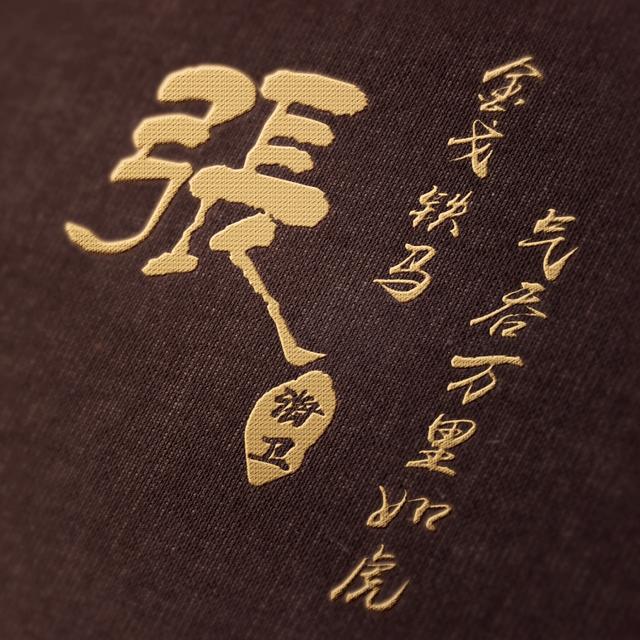 張
海卫
金戈铁马
气吞万里如虎